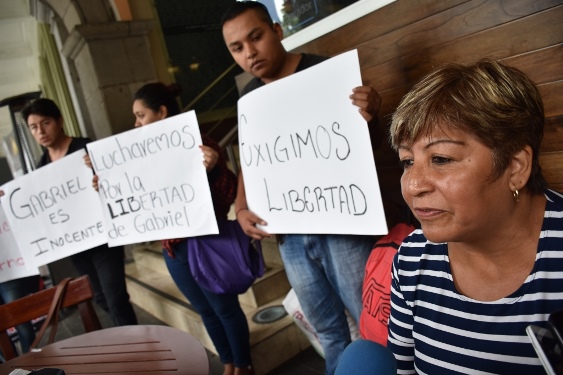 GABRIEL
ES
INOCENTE
LUCHAREMOS
Por la
LIBERTAD
de Gabriel
EXIGIMOS
LIBERTAD